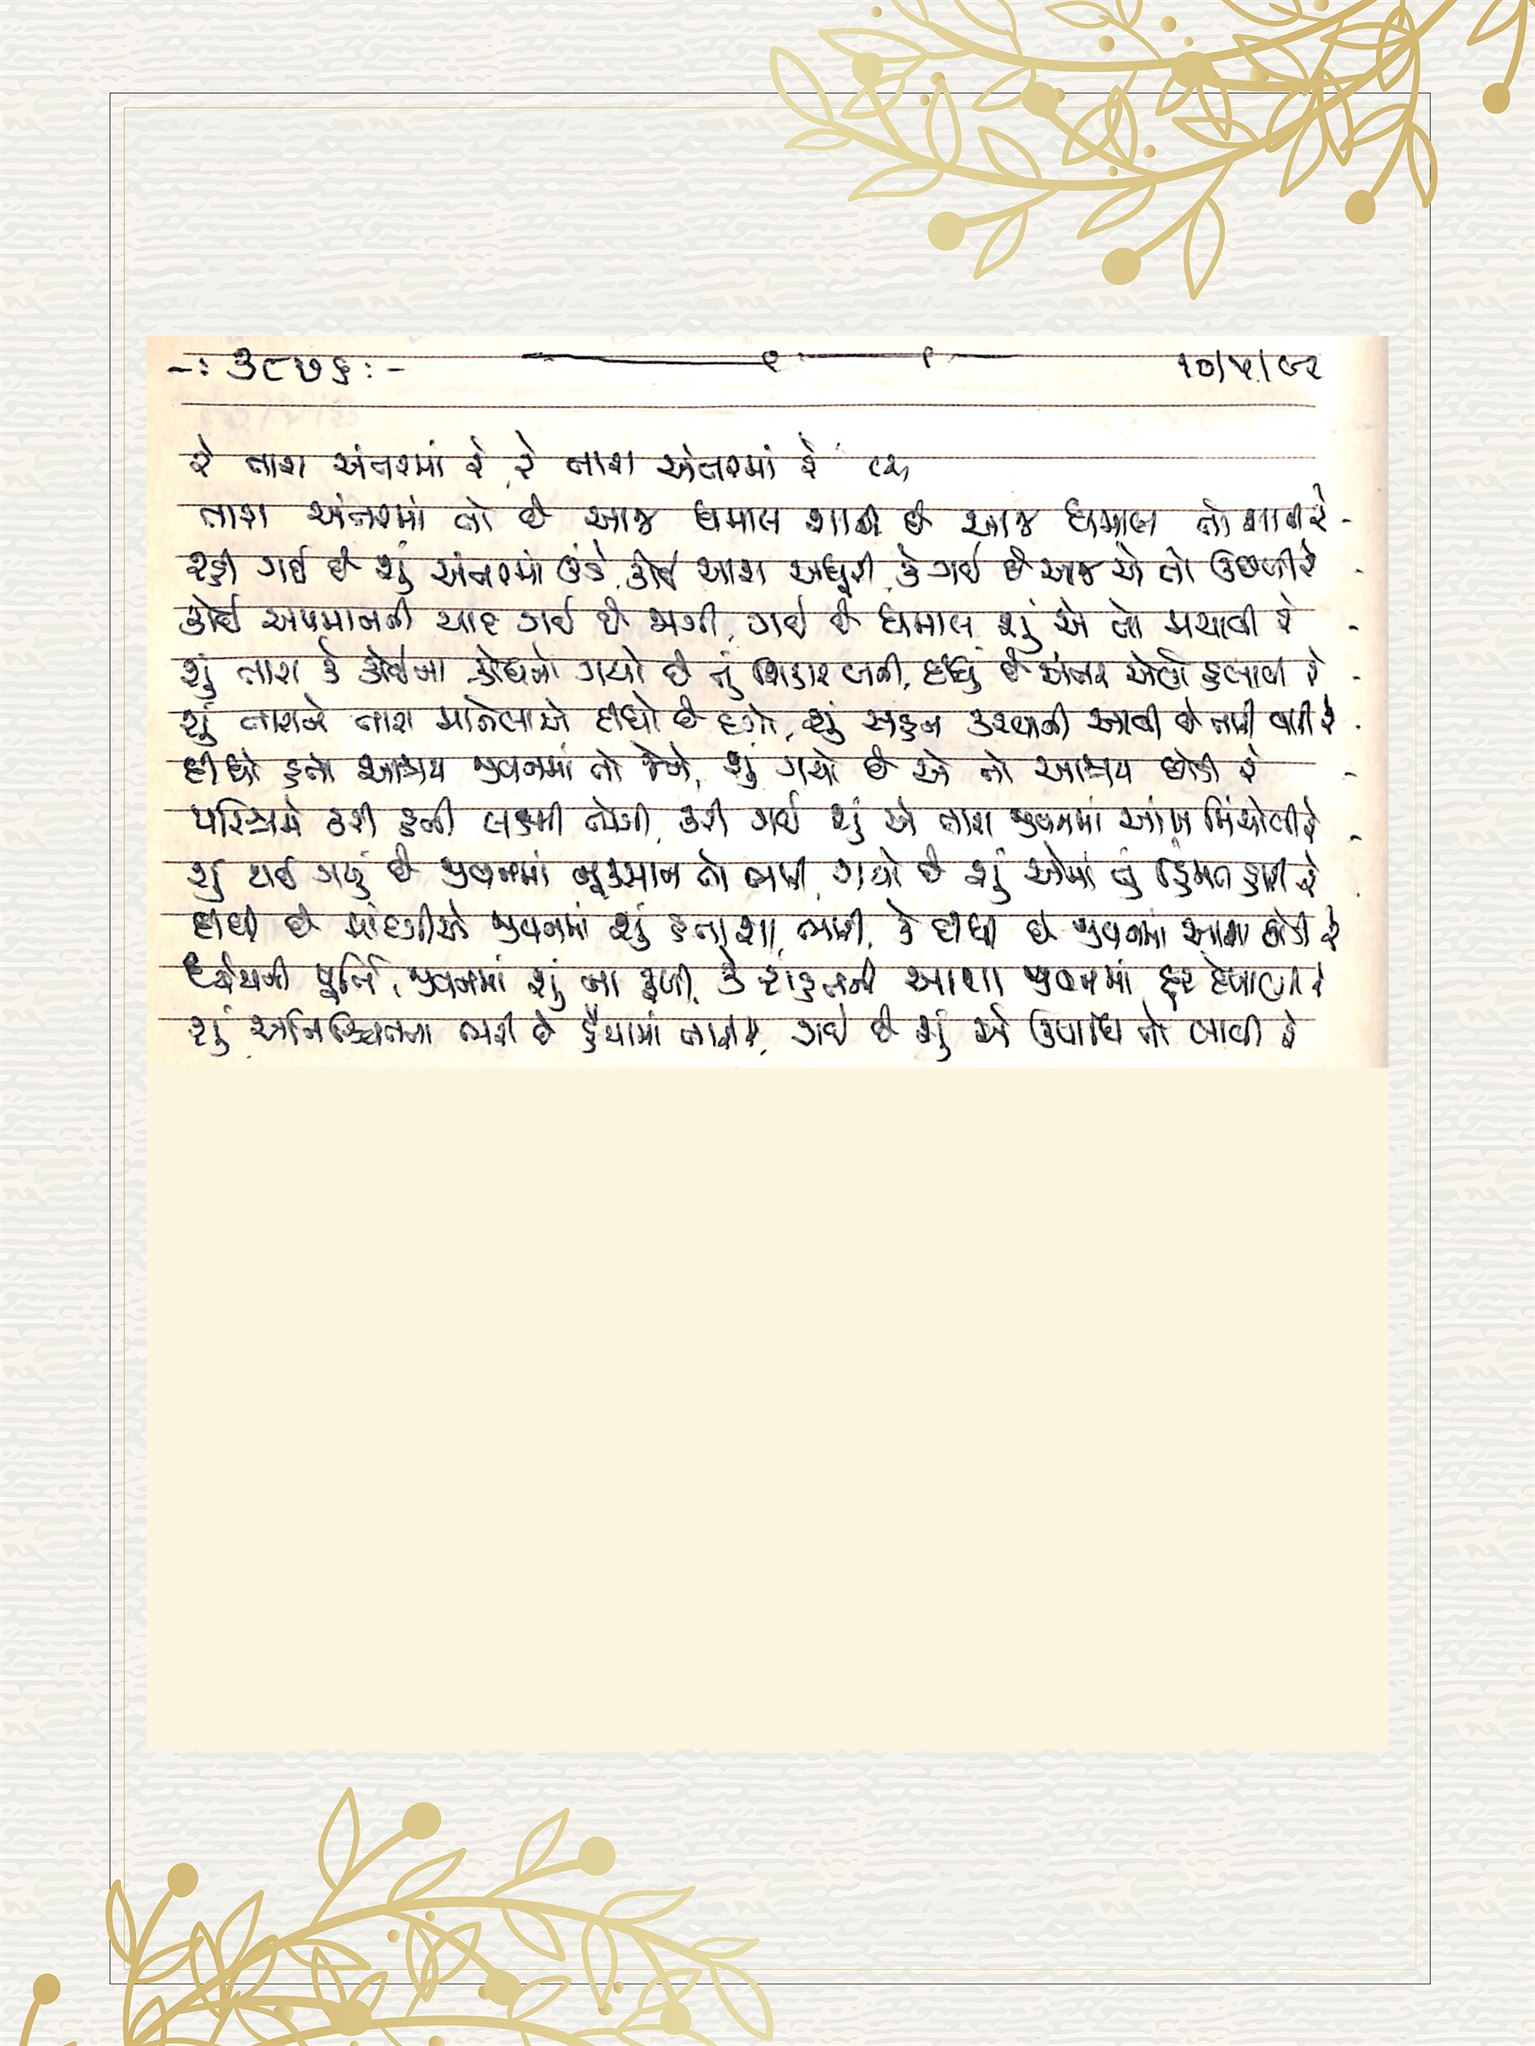 -: ૩૮૭૬ :- ૧૦/૫/૯૨
રે તારા અંતરમાં રે, રે તારા અંતરમાં રે (૨)
તારા અંતરમાં તો છે આજ ધમાલ શાની છે આજ ધમાલ તો શાની રે -
રહી ગઈ છે શું અંતરમાં ઉંડે, કોઈ આશા અધૂરી, કે ગઈ છે આજ એ તો ઉછળી રે -
કોઈ અપમાનની યાદ ગઈ છે જાગી, ગઈ છે ધમાલ શું એ તો મચાવી રે -
શું તારા કે કોઈના ક્રોધનો ગયો છે તું શિકાર બની, દીધું છે અંતર એણે હલાવી રે -
શું તારાને તારા માનેલાએ દીધો છે દગો, શું સહન કરવાની આવી છે તારી વારી રે -
દીધો હતો આશ્રય જીવનમાં તો જેને, શું ગયો છે એ તો આશ્રય છોડી રે -
પરિશ્રમે કરી હતી લક્ષ્મી ભેગી, કરી ગઈ શું એ તારા જીવનમાં આંખ મિંચોલી રે -
શું થઈ ગયું છે જીવનમાં નૂકસાન તો ભારી, ગયો છે શું એમાં તું હિંમત હારી રે -
દીધી છે માંદગીએ જીવનમાં શું હતાશા ભારી, કે દીધી છે જીવનમાં આશા છોડી રે
ધ્યેયની પૂર્તિ, જીવનમાં શું ના ફળી, કે રાહતની આશા જીવનમાં દૂર દેખાણી રે
શું અનિશ્ચિતતા ભરી છે હૈયામાં તારા, ગઈ છે શું એ ઉપાધિ તો લાવી રે